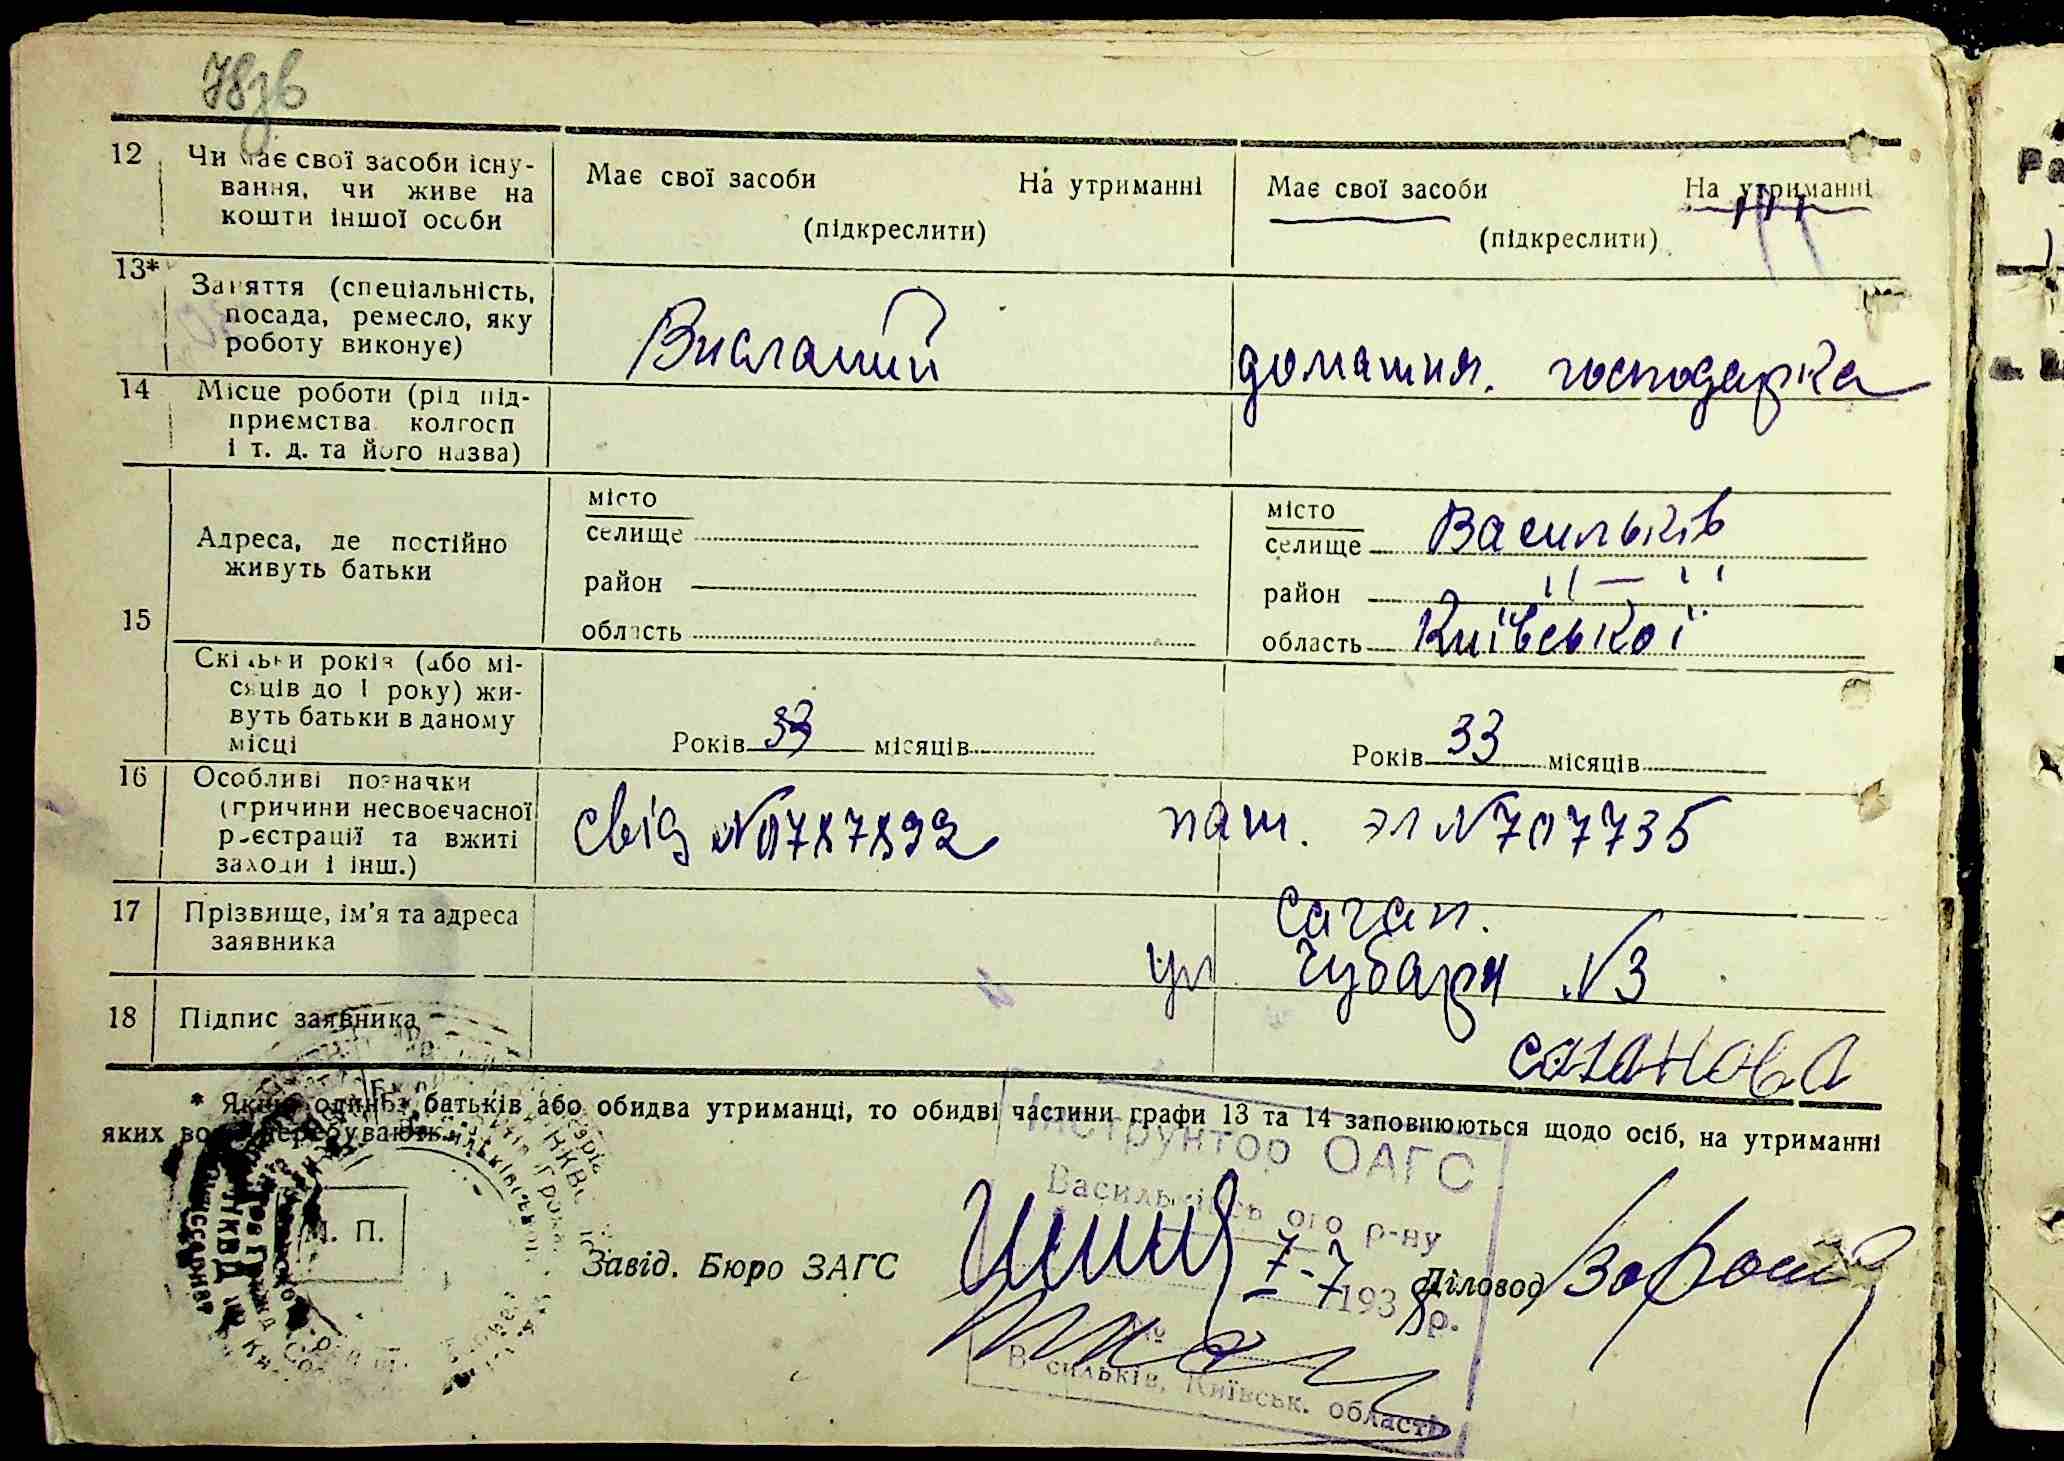 78зв
12 Чи має свої засоби існу-
вання, чи живе на
кошти іншої особи
Має свої засоби На утриманні
(підкреслити)
Має свої засоби На утриманні
(підкреслити)
13* Заняття (спеціальність,
посада, ремесло, яку
роботу виконує)
Висланий
домашня. господарка
14 Місце роботи (рід під-
приємства колгосп
і т. д. та його назва)
15 Адреса, де постійно
живуть батьки
місто
селище
район
область
місто
селище Васильків
район "—"
область Київської
Скільки років (або мі-
сяців до 1 року) жи-
вуть батьки в даному
місці
Років 33 місяців
Років 33 місяців
16 Особливі позначки
(причини несвоєчасної
реєстрації та вжиті
заходи і інш.)
свід №0787892
паш. эл №707735
17 Прізвище, ім'я та адреса
заявника
Саган.
ул Чубаря №3
18 Підпис заявника
Саганова
* Якщо один з батьків або обидва утриманці, то обидві частини графи 13 та 14 заповнюються щодо осіб, на утриманні
яких вони перебувають.
Інструктор ОАГС
Васильківського р-ну
7-7 1938 р.
№
Васильків, Київськ. області
М. П.
Завід. Бюро ЗАГС
Діловод